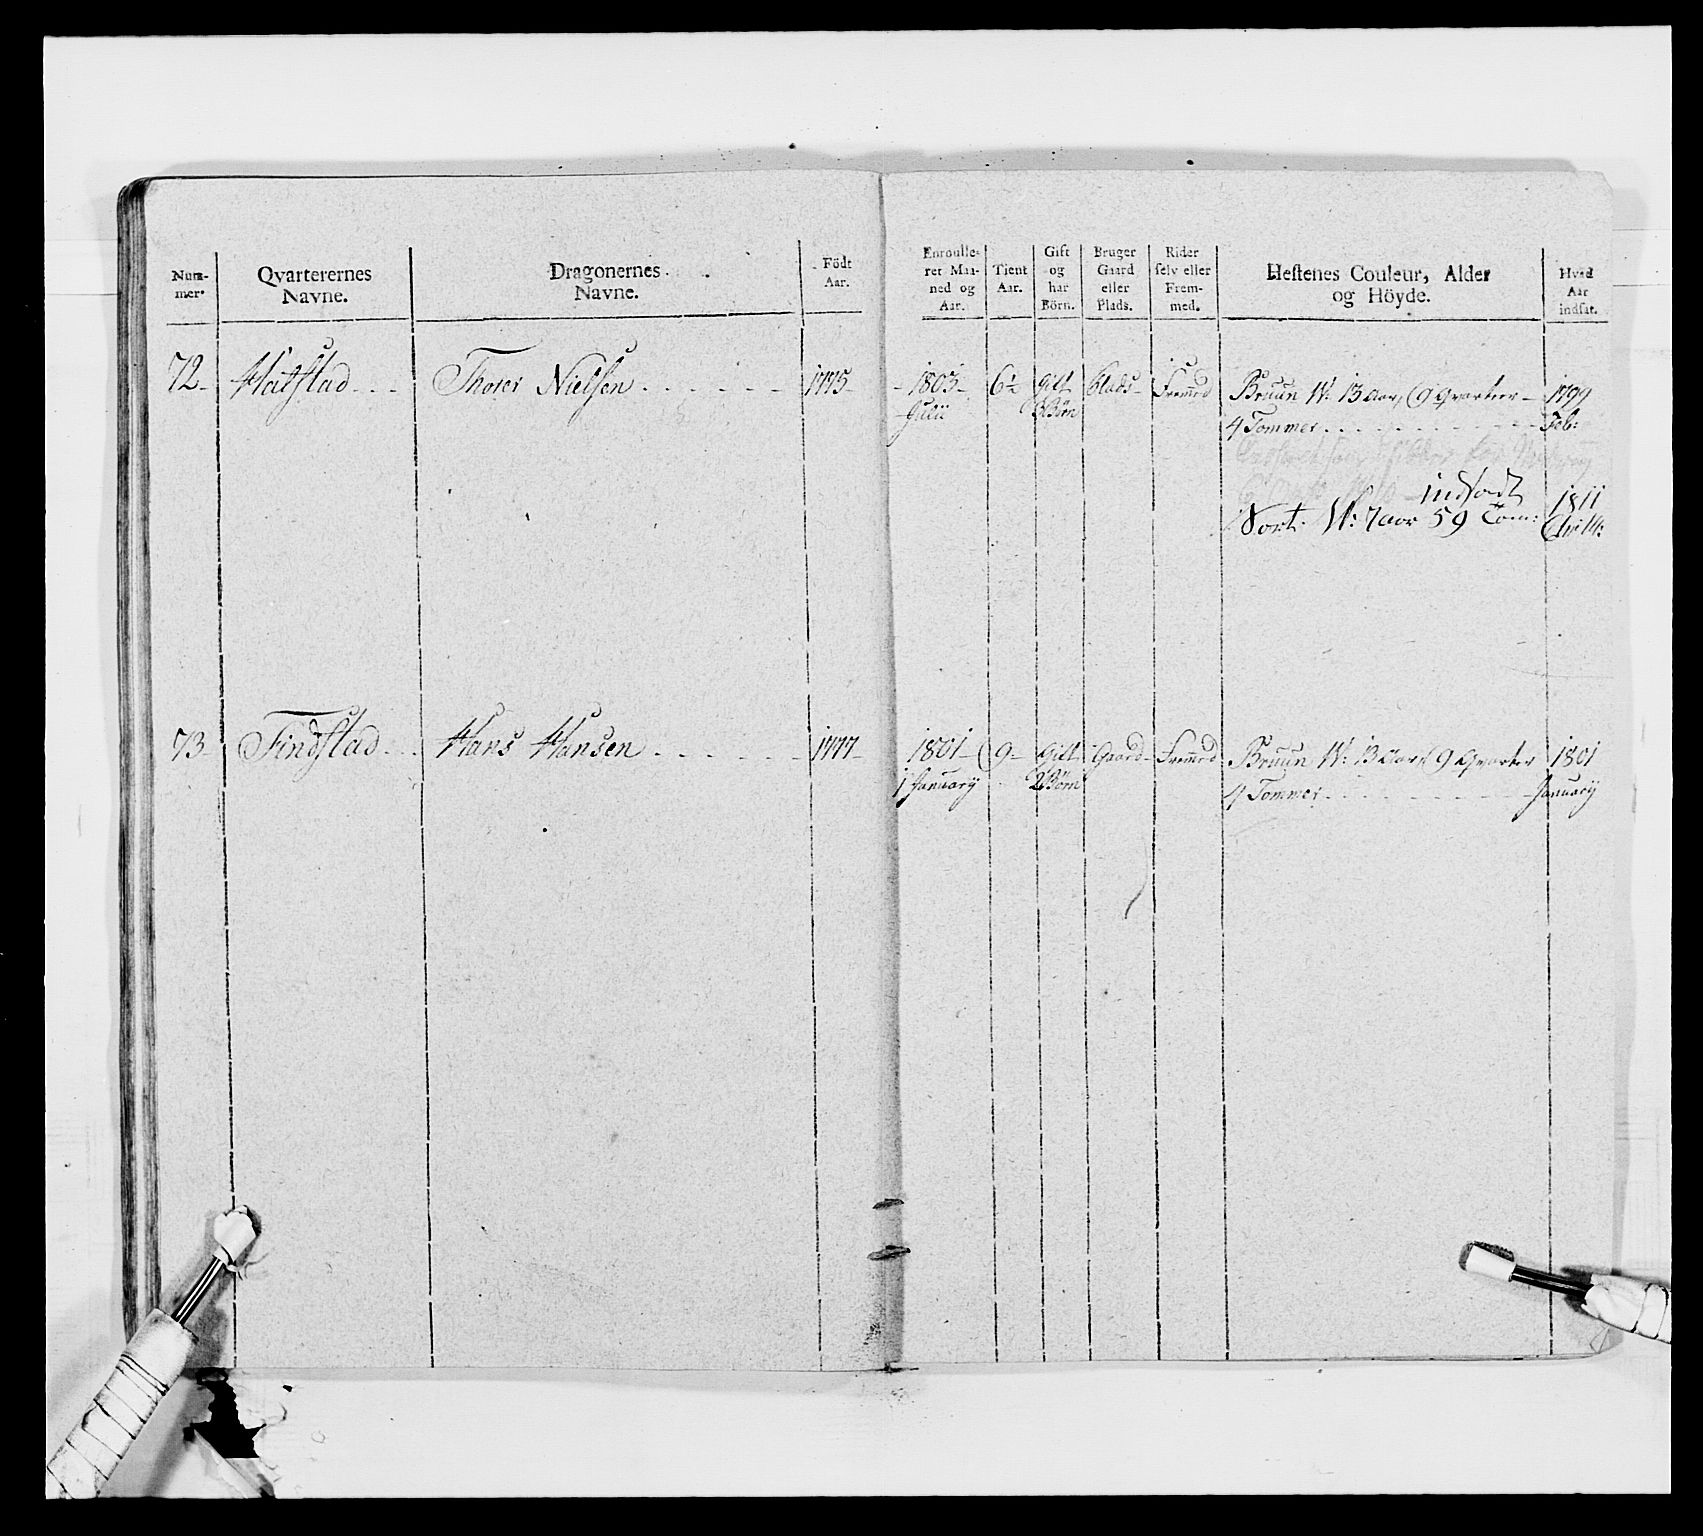 Num-
mer.
Qvarterernes
Navne.
Dragonernes
Navne.
Födt
Aar.
Enroulle-
ret Maa-
ned og
Aar.
Tient
Aar.
Gift
og
har
Börn.
Bruger
Gaard
eller
Plads.
Rider
selv eller
Frem-
med.
Hestenes Couleur, Alder
og Höyde.
Hvad
Aar
indsat.
72 Hatstad Thorer Nielsen 1775 1803 6½ Gift Plads Fremed Bruun W: 13 Aar, 9 Qvarteer 1799
Julii 3 Börn 4 Tommer Feb:
indsadt 1811
Sort W: 7 aar 59 Tom:
73 Findstad Hans Hansen 1777 1801 9 Gift Gaard Fremed Bruun W: 13 Aar, 9 Qvarter 1801
1 January 2 Börn 4 Tommer January